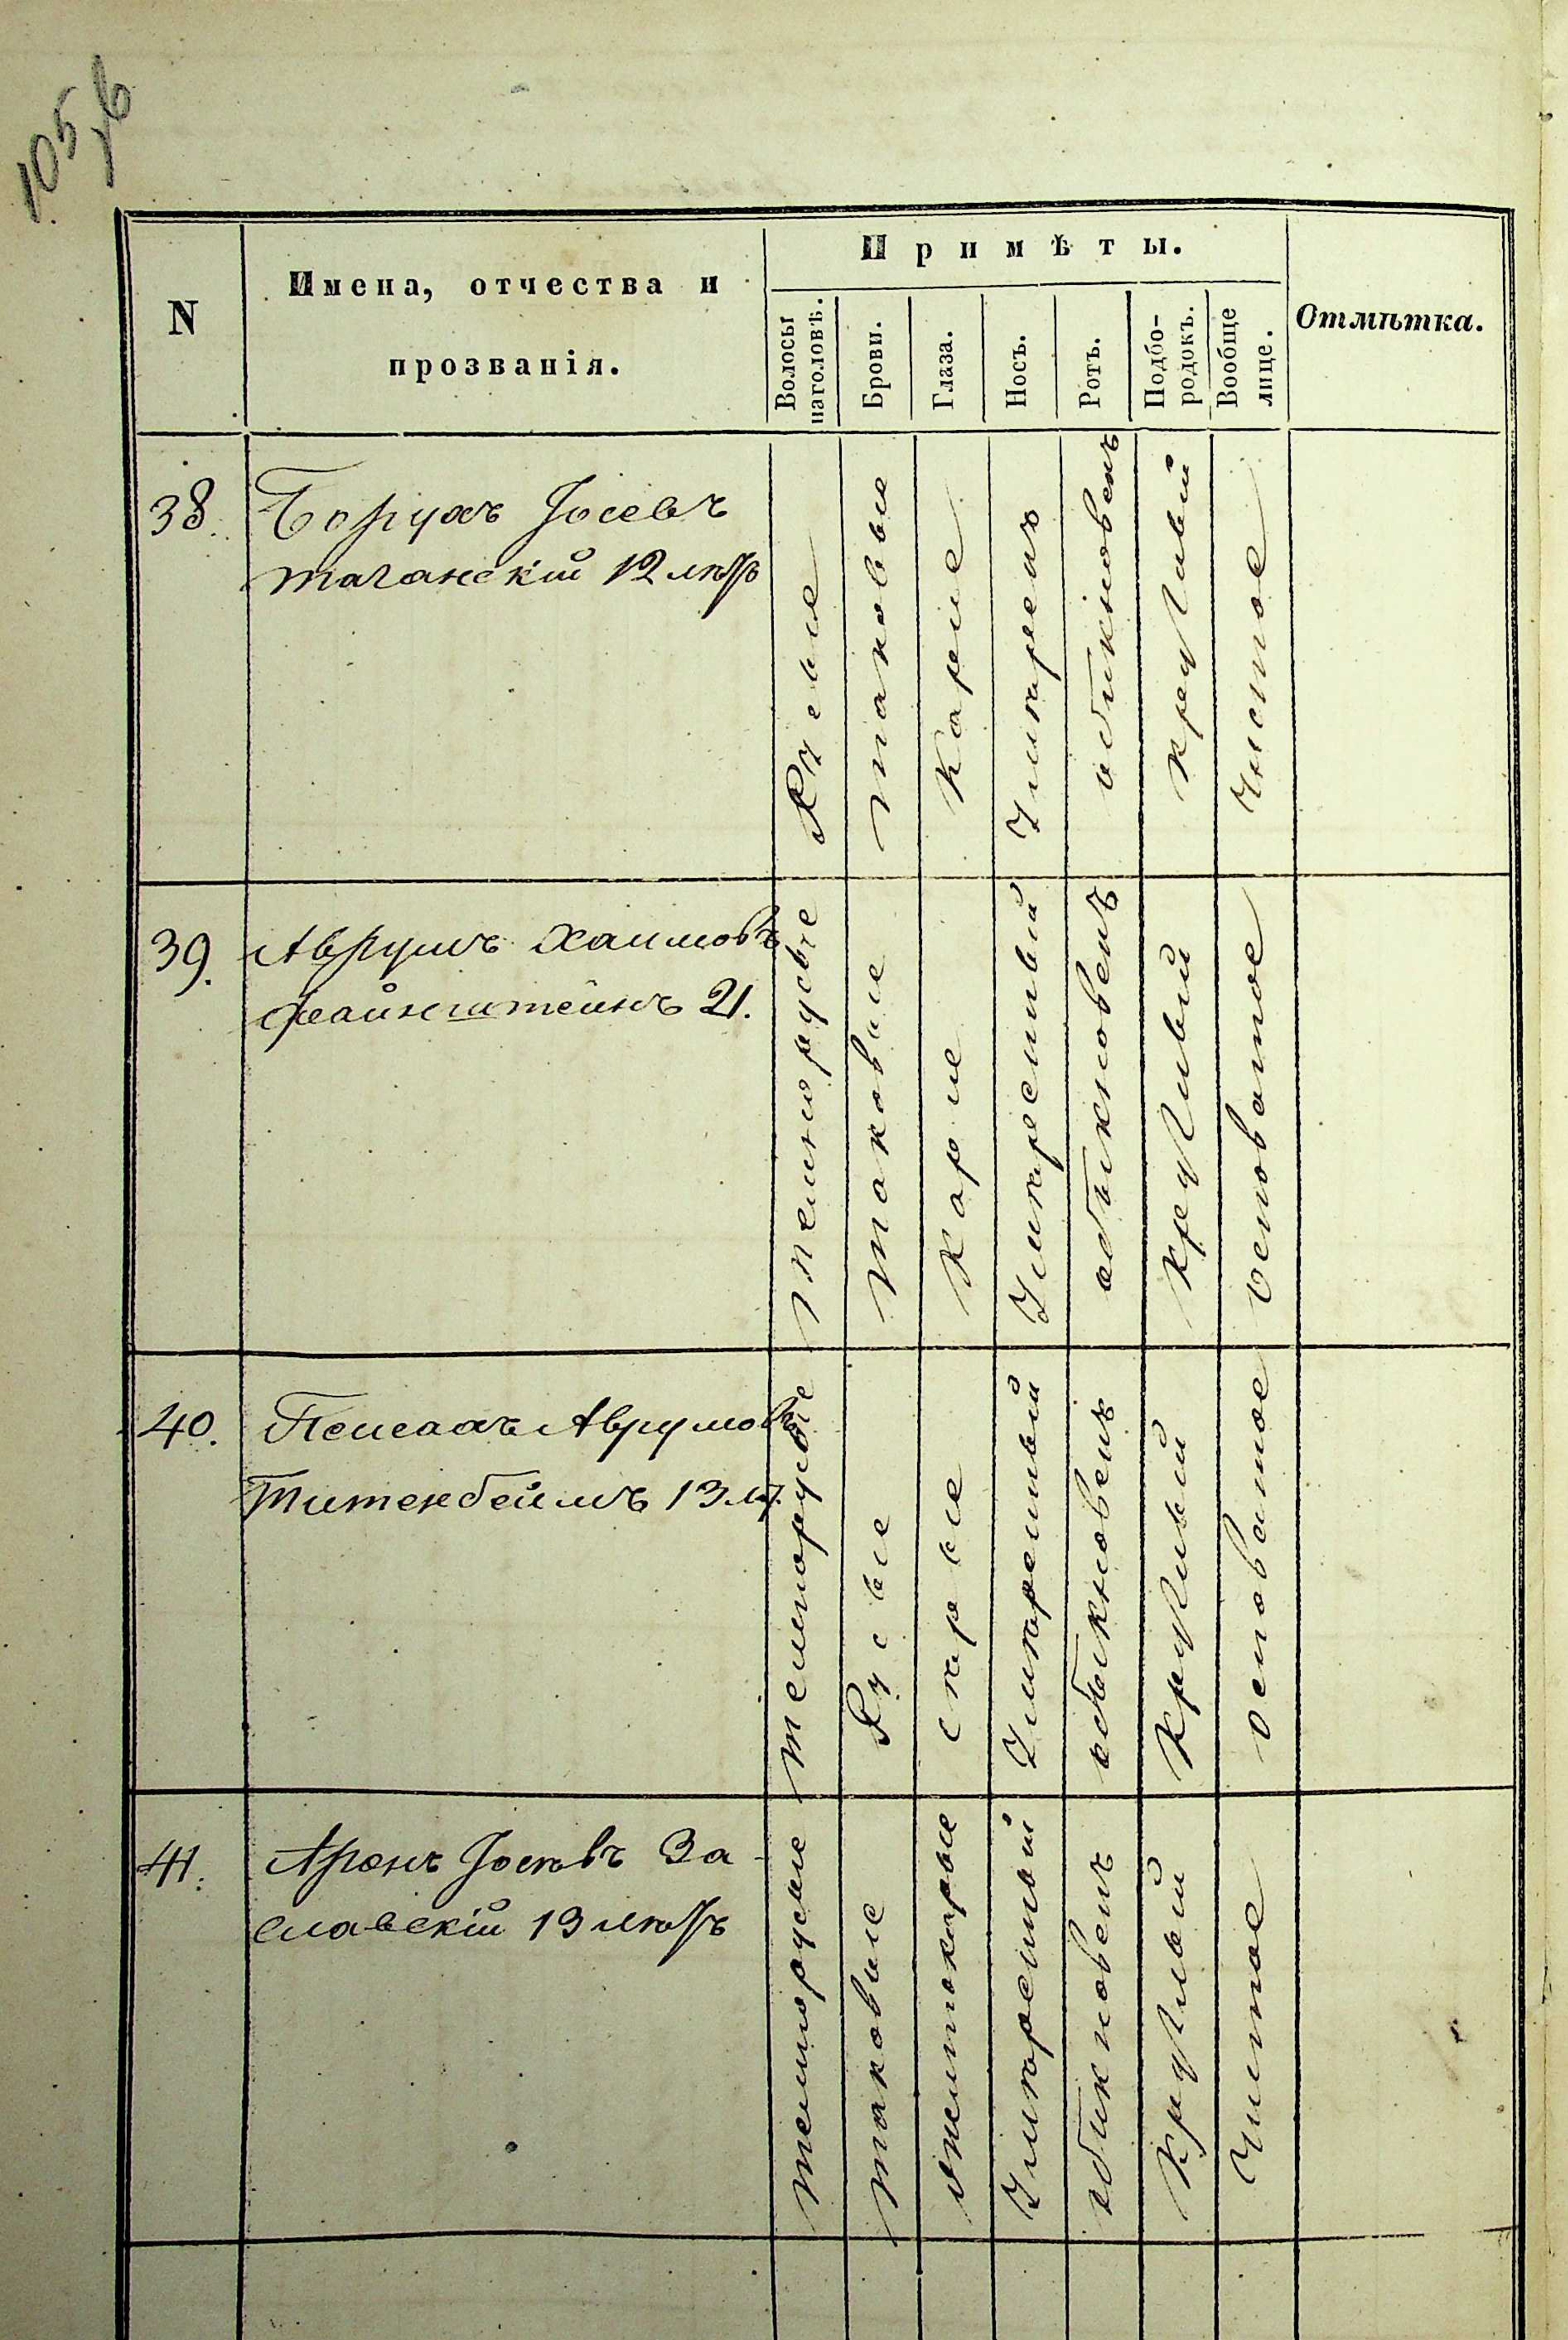 105 об
N
Имена, отчества и
прозванія.
Примѣты.
Волосы
наголовѣ.
Брови.
Глаза.
Носъ.
Ротъ.
Подбо-
родокъ.
Вообще
лице.
Отмѣтка.
38.
Борухъ Іосевъ
таганскій 12 лѣтъ
Русые
таковые
Карие
Умѣрень
обикновенъ
круглый
Чистое
39.
Аврумъ Хаимовъ
файнштейнъ 21.
темнорусые
таковые
Карие
Умѣренный
обыкновенъ
круглый
осповатое
40.
Пейсахъ Аврумовъ
Титенбеймъ 13 л.
темнорусые
Русые
сѣрые
Умѣренный
обыкновенъ
Круглый
осповатое
41.
Аронъ Іосевъ За-
славскій 13 лѣтъ
темнорусые
таковые
желтокарые
Умѣренный
обикновенъ
Круглый
Чистое